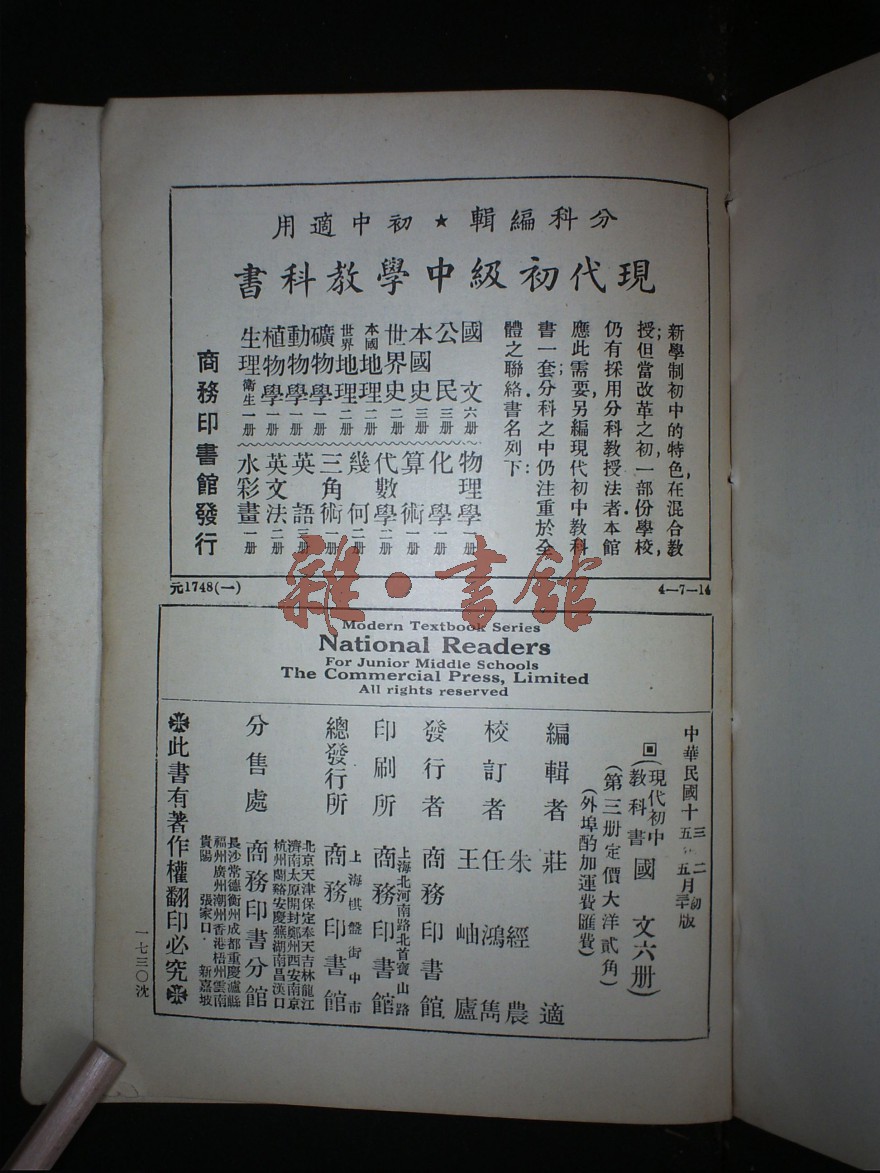 分科編輯★初中適用
現代初級中學教科書
新學制初中的特色，在混合教
授；但當改革之初，一部份學校，
仍有採用分科教授法者．本館
應此需要，另編現代初中教科
書一套；分科之中仍注重於全
體之聯絡．書名列下：
國文 六册
公民 三册
本國史 三册
世界史 二册
本國地理 二册
世界地理 二册
礦物學 一册
動物學 一册
植物學 一册
生理衛生 一册
物理學 一册
化學 一册
算術 一册
代數學 二册
幾何 二册
三角術 一册
英語 三册
英文法 二册
水彩畫 一册
商務印書館發行
元1748(一)
4—7—14
雜·書館
Modern Textbook Series
National Readers
For Junior Middle Schools
The Commercial Press, Limited
All rights reserved
中華民國十
三年二月初版
五年五月三十版
(現代初中教科書) 國文六册
(第三册定價大洋貳角)
(外埠酌加運費匯費)
編輯者 莊適
校訂者 朱經農 任鴻雋 王岫廬
發行者 商務印書館
印刷所 上海北河南路北首寶山路 商務印書館
總發行所 上海棋盤街中市 商務印書館
分售處 商務印書分館
北京天津保定奉天吉林龍江
濟南太原開封鄭州西安南京
杭州蘭谿安慶蕪湖南昌漢口
長沙常德衡州成都重慶瀘縣
福州廣州潮州香港梧州雲南
貴陽 張家口 新嘉坡
此書有著作權翻印必究
一七三〇沈